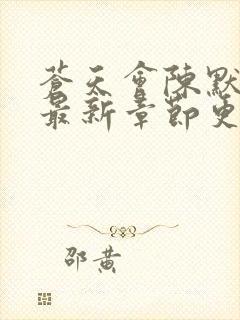 蒼天會陳默
最新章節更
邵黃